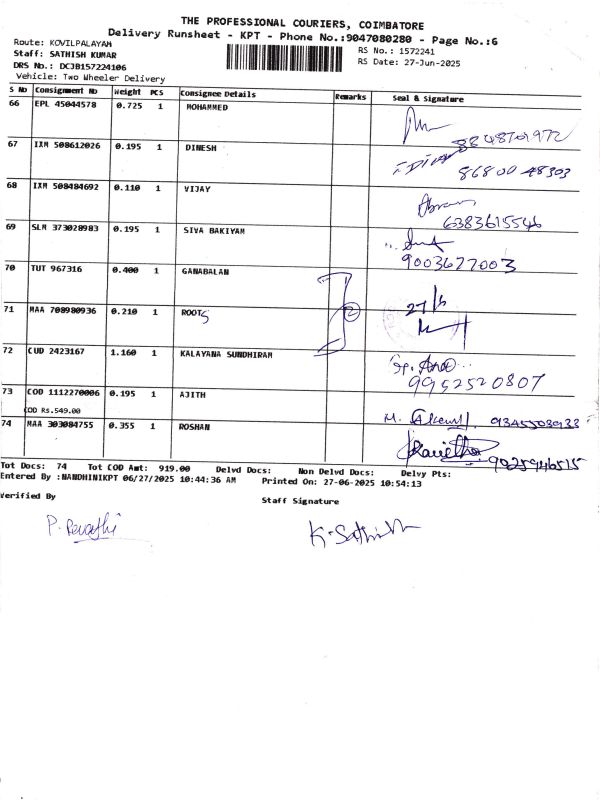 THE PROFESSIONAL COURIERS, COIMBATORE
Delivery Runsheet - KPT - Phone No.:9047080280 - Page No.:6
Route: KOVILPALAYAM
Staff: SATHISH KUMAR
DRS No.: DCJB157224106
Vehicle: Two Wheeler Delivery
RS No.: 1572241
RS Date: 27-Jun-2025
S No Consignment No Weight PCS Consignee Details Remarks Seal & Signature
66 EPL 45044578 0.725 1 MOHAMMED
67 IXM 508612026 0.195 1 DINESH 8680048303
68 IXM 508484692 0.110 1 VIJAY 6383615546
69 SLM 373028983 0.195 1 SIVA BAKIYAM 9003677003
70 TUT 967316 0.400 1 GANABALAN
71 MAA 708980936 0.210 1 ROOTS 2 27/6
72 CUD 2423167 1.160 1 KALAYANA SUNDHIRAM 9952520807
73 COD 1112270006 0.195 1 AJITH
COD Rs.549.00
74 MAA 303084755 0.355 1 ROSHAN 9025946515
Tot Docs: 74 Tot COD Amt: 919.00 Delvd Docs: Non Delvd Docs: Delvy Pts:
Entered By :NANDHINIKPT 06/27/2025 10:44:36 AM Printed On: 27-06-2025 10:54:13
Verified By
Staff Signature
P. Revathi
K. Sathish